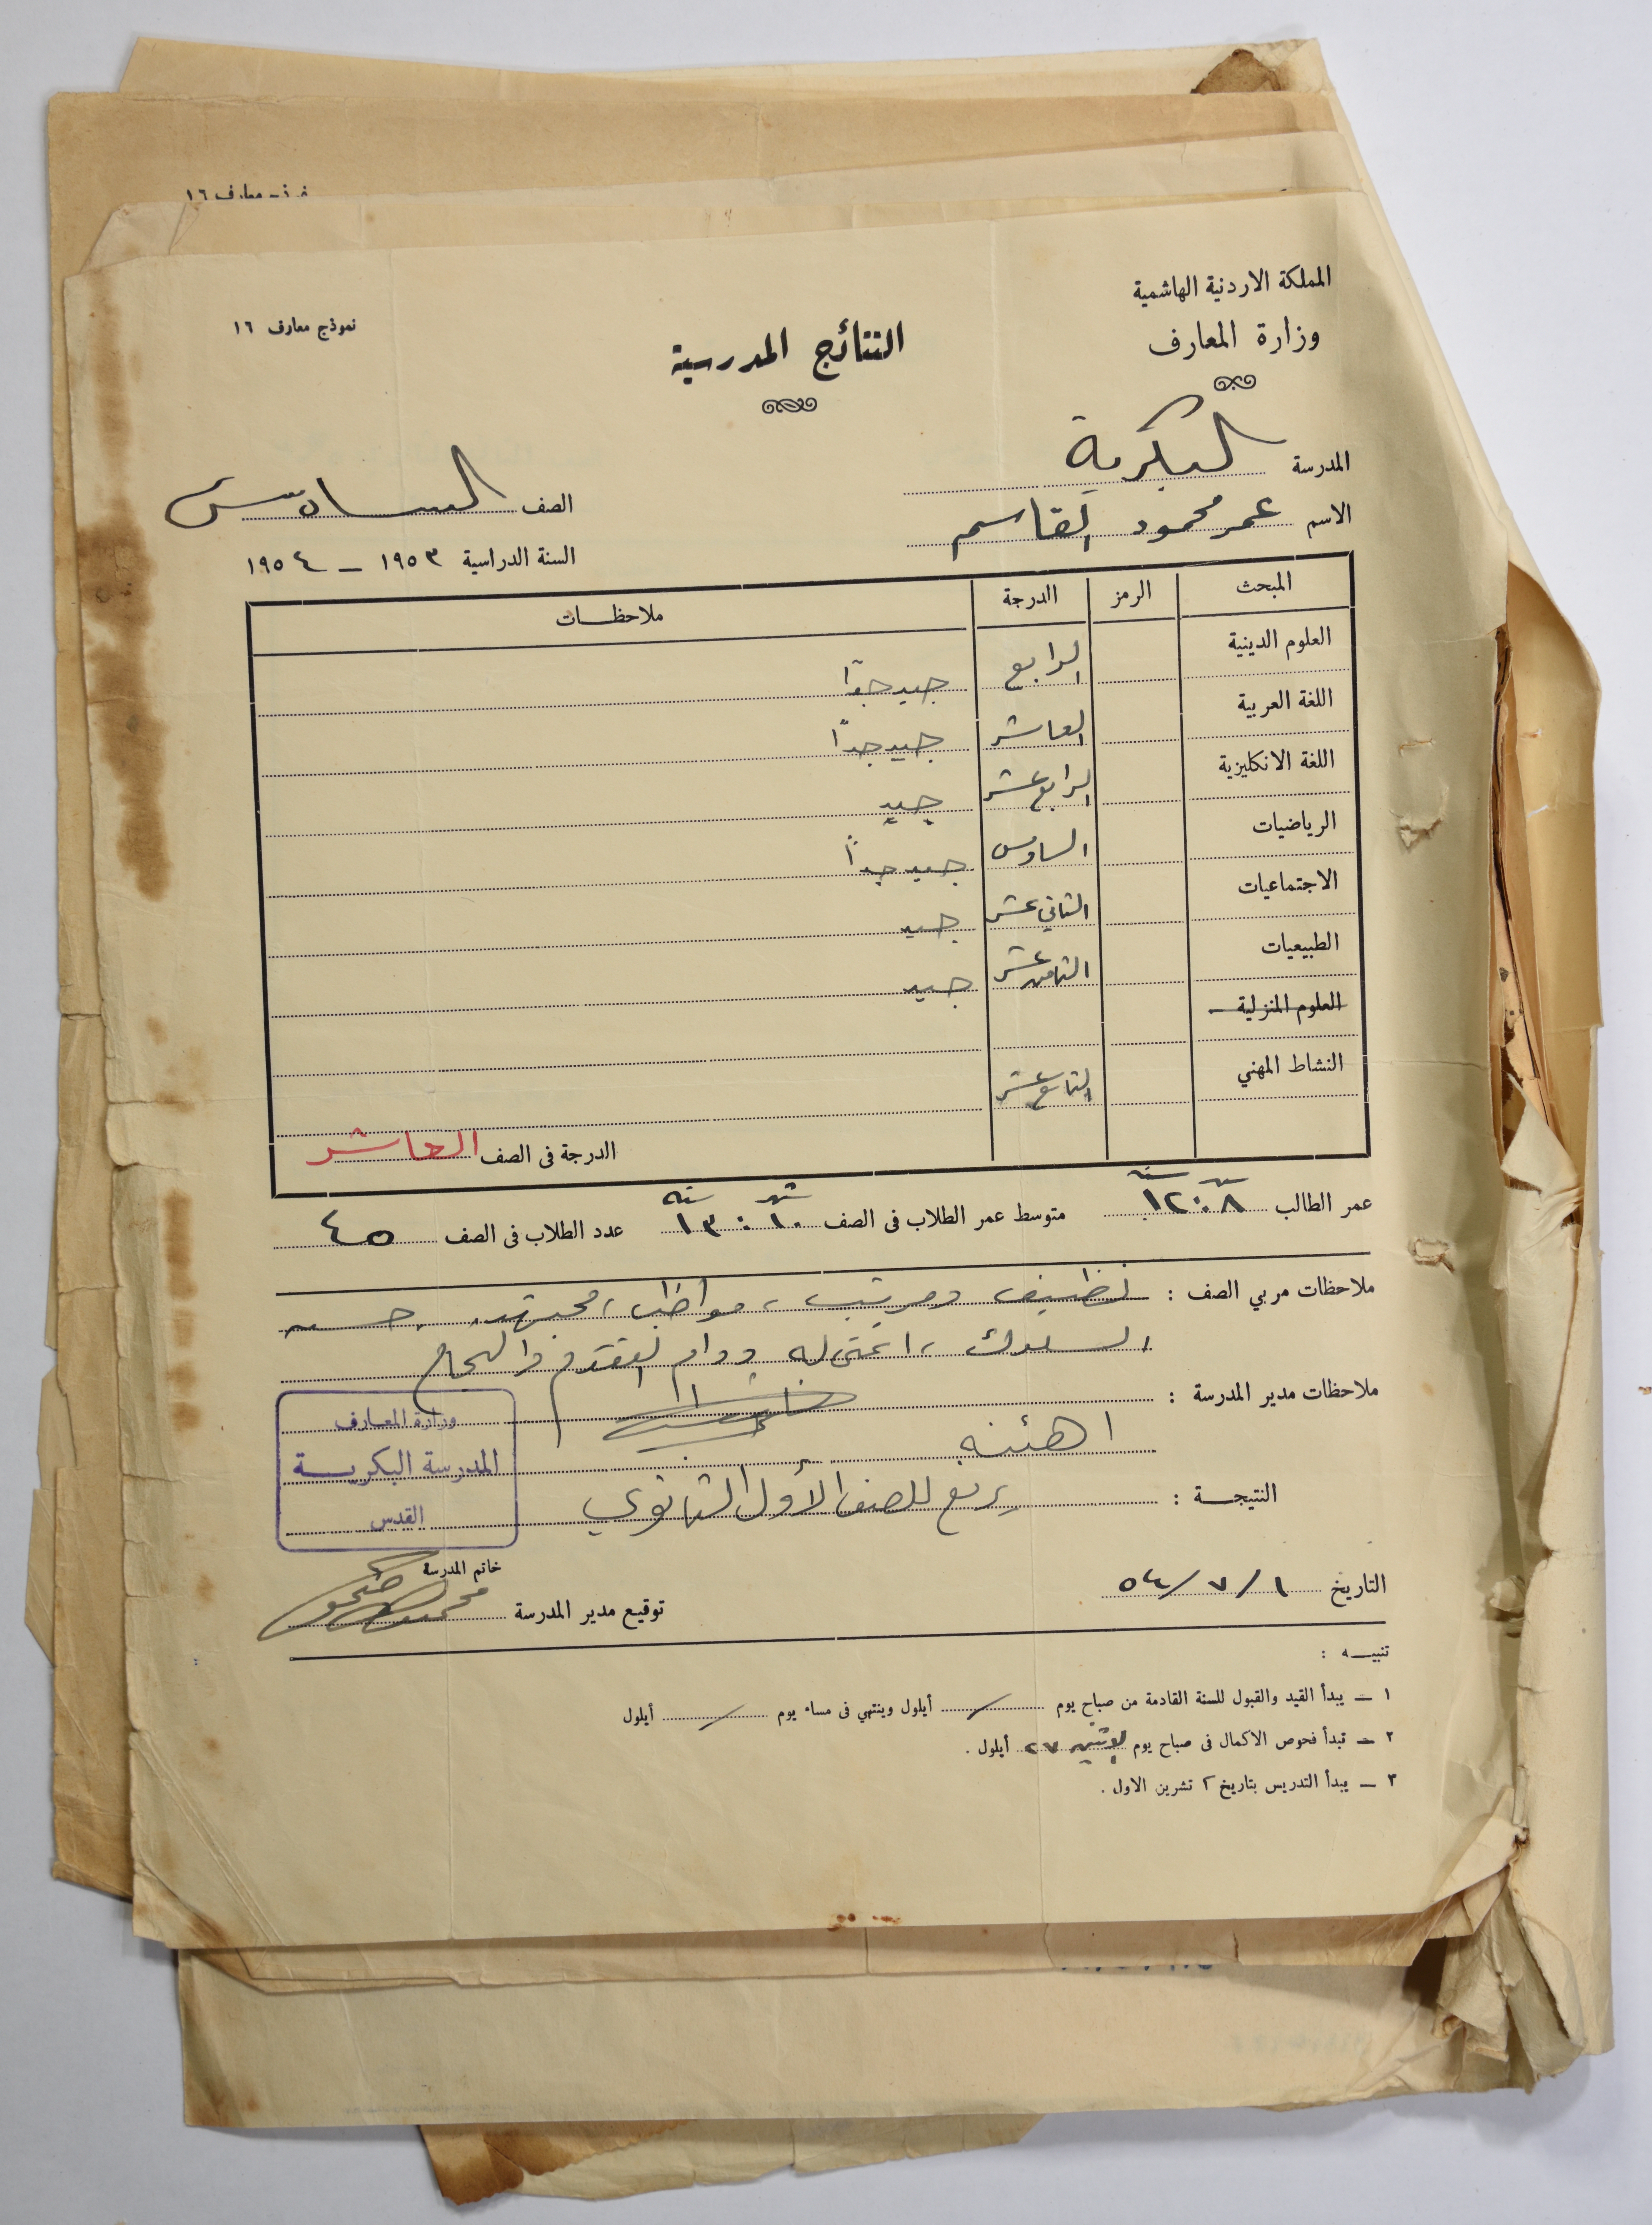 نموذج معارف ١٦
المملكة الاردنية الهاشمية
وزارة المعارف
نموذج معارف ١٦
النتائج المدرسية
المدرسة البكرية
الاسم عمر محمود القاسم
الصف السادس
السنة الدراسية ١٩٥٣ – ١٩٥٤
المبحث الرمز الدرجة ملاحظات
العلوم الدينية الرابع جيد جدًا
اللغة العربية العاشر جيد جدًا
اللغة الانكليزية الرابع عشر جيد
الرياضيات السادس جيد جدًا
الاجتماعيات الثاني عشر جيد
الطبيعيات الثامن عشر جيد
العلوم المنزلية
النشاط المهني التاسع عشر
الدرجة في الصف العاشر
عمر الطالب ٨ : ١٢ سنه متوسط عمر الطلاب في الصف ١٠ شهر : ١٣ سنه عدد الطلاب في الصف ٤٥
ملاحظات مربي الصف : نظيف ومرتب ، مواظب ، مجتهد ، حسن
السلوك ، اتمنى له دوام التقدم والنجاح
ملاحظات مدير المدرسة :
اهنئه
النتيجة : يرفع للصف الأول الثانوي
وزارة المعارف
المدرسة البكرية
القدس
خاتم المدرسة
التاريخ ١/٧/٥٤
توقيع مدير المدرسة
تنبيه :
١ – يبدأ القيد والقبول للسنة القادمة من صباح يوم / أيلول وينتهي في مساء يوم / أيلول
٢ – تبدأ فحوص الاكمال في صباح يوم الاثنين ٢٧ أيلول .
٣ – يبدأ التدريس بتاريخ ٢ تشرين الاول .